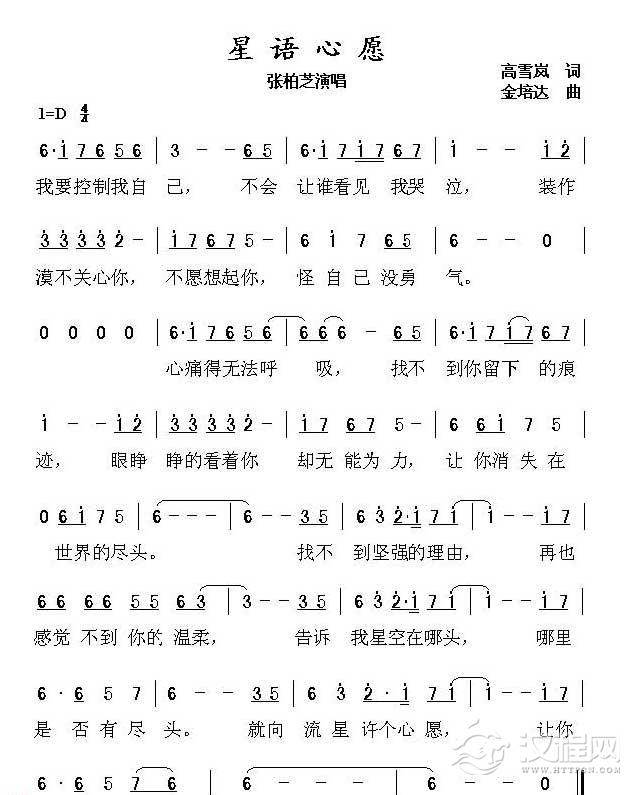 星语心愿
张柏芝演唱
高雪岚 词
金培达 曲
1=D 4/4
6·i 7 6 5 6 | 3 - - 6 5 | 6·i 7 i 7 6 7 | i - - i 2 |
我要控制我自 己， 不会 让谁看见 我哭 泣， 装作
3 3 3 3 2 - | i 7 6 7 5 - | 6 i 7 6 5 | 6 - - 0 |
漠不关心你， 不愿想起你， 怪 自己 没勇 气。
0 0 0 0 | 6·i 7 6 5 6 | 6 6 6 - 6 7 | 6·i 7 i 7 6 7 |
心痛得无法呼 吸， 找不 到你留下 的痕
i - - i 2 | 3 3 3 3 2 - | i 7 6 7 5 | 6 6 i 7 5 |
迹， 眼睁 睁的看着你 却无 能为 力， 让 你 消 失 在
0 6 i 7 5 | 6 - - - | 6 - - 3 5 | 6 3 2·i 7 i | i - - i 7 |
世界的尽头。 找不 到坚强的理由， 再也
6 6 6 6 5 5 6 3 | 3 - - 3 5 | 6 3 2·i 7 i | i - - i 7 |
感觉 不到 你的 温柔， 告诉 我星空在哪头， 哪里
6 · 6 5 7 | 6 - - 3 5 | 6 3 2 · i | 7 i - i 7 |
是 否 有 尽 头。 就向 流 星 许个心 愿， 让你
6 · 6 5 7 6 | 6 - - - | 6 - - - ‖
汉程网
HTTPCN.COM